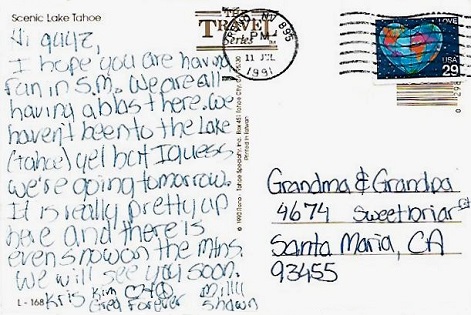 Scenic Lake Tahoe
Hi guyz,
I hope you are having
fun in S.M. We are all
having a blast here. We
haven't been to the Lake
(tahoe) yet but I guess
we're going tomorrow.
It is really pretty up
here and there is
even snow on the mtns.
We will see you soon.
Kris Kim Milli
Greg Forever Shawn
L-168
THE
TRAVEL
Series
RENO, NV 895
PM
11 JUL
1991
LOVE
USA
29
Printed in Taiwan
Grandma & Grandpa
4674 Sweetbriar St
Santa Maria, CA
93455